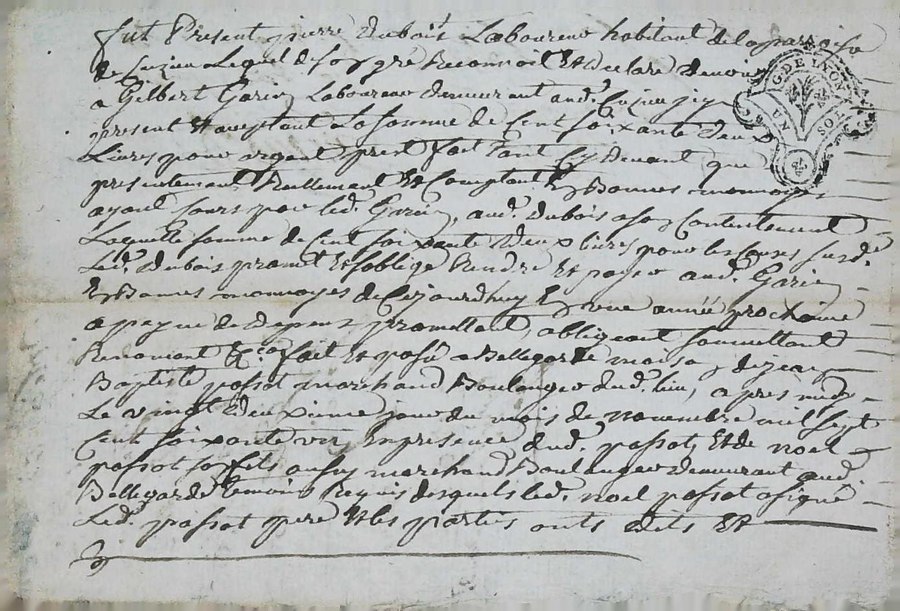 fut Present pierre Dubois Laboureur habitant de la paroisse
de Cuzieu Lequel de son gré Reconnoit Et declare devoir
a Gilbert Garin Laboureur demeurant aud. Cuzieu icy
present Et acceptant La somme de Cent soixante deux
Livres pour argent prest fait tant Cy devant que
presentement Reellement Et Comptant En Bonnes monnoyes
ayant Cours par led. Garin, aud. Dubois a son Contentement
Laquelle somme de Cent soixante deux livres pour les causes susd.
Led. Dubois promet Et soblige Rendre Et payer aud. Garin
En Bonnes monnoyes de Cejourdhuy En une année prochaine
a peyne de Depens promettant, obligeant soumettant
Renonceant &ca fait Et passé a Bellegarde maison de jean
Baptiste passot marchand Boulanger dud. lieu, apres midy
Le vingt deuxieme jour du mois de novembre mil sept
Cent soixante un, En presence dud. passot, Et de noel
passot son fils aussy marchand Boulanger demeurant aud.
Bellegarde temoins Requis desquels led. noel passot a signé
Led. passot pere Et les parties onts dits Et
G. DE LYON
UN SOL